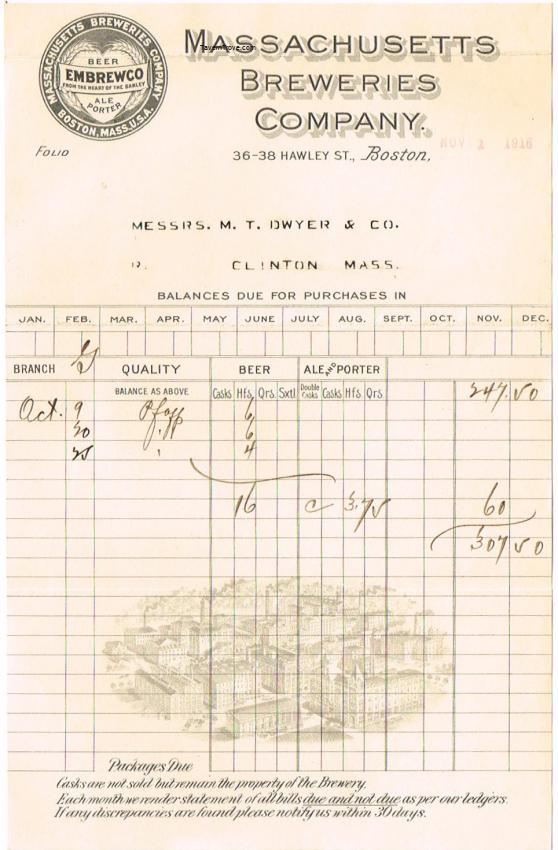 MASSACHUSETTS BREWERIES COMPANY
BEER
EMBREWCO
FROM THE HEART OF THE BARLEY
ALE
PORTER
BOSTON, MASS. U.S.A.
TavernTrove.com
MASSACHUSETTS
BREWERIES
COMPANY.
FOLIO
NOV 1 1916
36-38 HAWLEY ST., Boston,
MESSRS. M. T. DWYER & CO.
CLINTON MASS.
BALANCES DUE FOR PURCHASES IN
JAN. FEB. MAR. APR. MAY JUNE JULY AUG. SEPT. OCT. NOV. DEC.
BRANCH QUALITY BEER ALE AND PORTER
BALANCE AS ABOVE Casks Hfs. Qrs. Sxtl Double Casks Casks Hfs. Qrs. 247.50
Oct. 9 Pfaff 6
20 6
25 " 4
16 @ 3.75 60
307 50
Packages Due
Casks are not sold but remain the property of the Brewery.
Each month we render statement of all bills due and not due as per our ledgers.
If any discrepancies are found please notify us within 30 days.